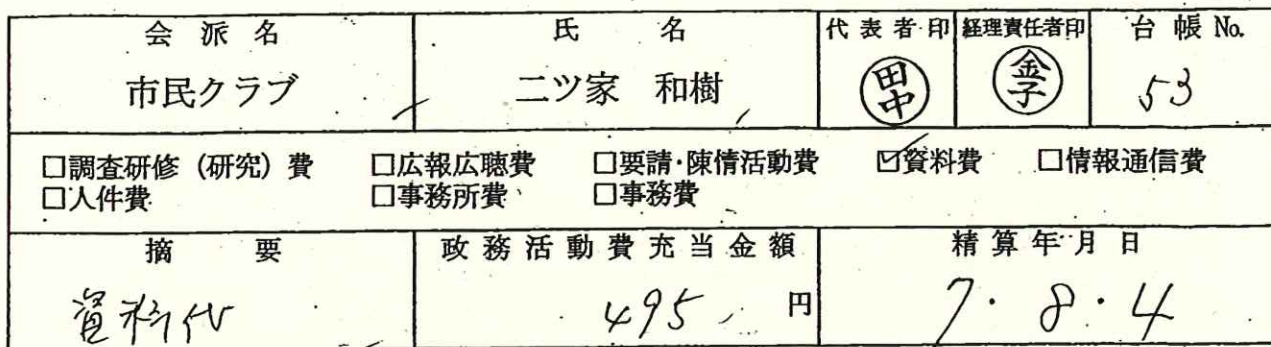 会派名 氏名 代表者印 経理責任者印 台帳No.
市民クラブ 二ツ家 和樹 田中 金子 53
□調査研修(研究)費 □広報広聴費 □要請・陳情活動費 ☑資料費 □情報通信費
□人件費 □事務所費 □事務費
摘要 政務活動費充当金額 精算年月日
資料代 495 円 7・8・4